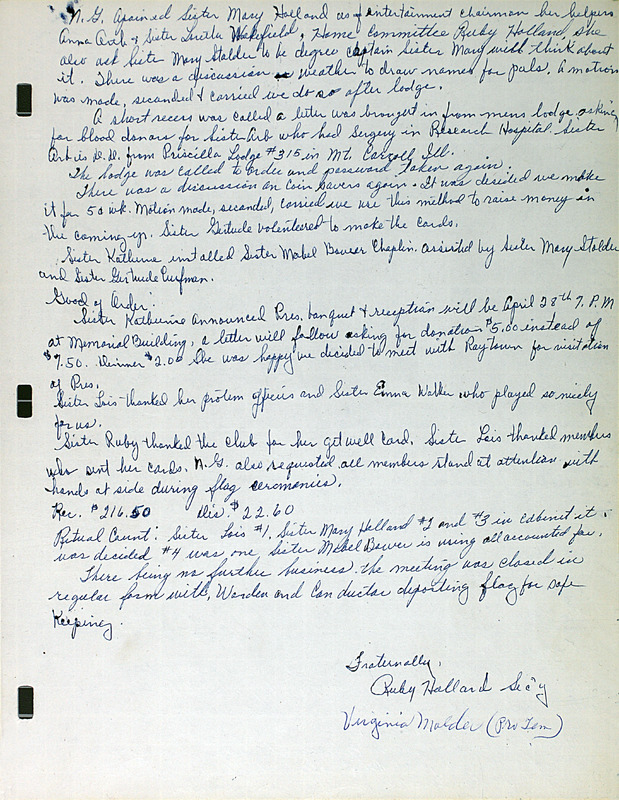 N.G. Apained Sister Mary Holland as entertainment chairman her helpers
Anna Arb & Sister Luella Wakefield, Home Committee Ruby Holland, she
also ask Sister Mary Stalder to be degree captain Sister Mary with think about
it. There was a discussion on weather to draw names for pals. A motion
was made, secanded & carried we do so after lodge.
A short recess was called a letter was brought in from mens lodge asking
for blood donors for Sister Arb who had sergery in Research Hospital. Sister
Arb is D.D. from Priscilla Lodge #315 in Mt. Carroll Ill.
The lodge was called to order and password taken again.
There was a discussion on Coin Savers again. It was decided we make
it for 50 wk. Motion made, secanded, carried we use this method to raise money in
the coming yr. Sister Gertude volenteered to make the cards.
Sister Katherine installed Sister Mabel Bower Chaplin, assisted by Sister Mary Stalder
and Sister Gertrude Curfman.
Good of Order:
Sister Katherine announced Pres. banquet & reception will be April 28th 7. P.M
at Memorial Building, a letter will follow asking for donation $5.00 instead of
$7.50. Dinner $2.00 She was happy we decided to meet with Raytown for visitation
of Pres.
Sister Lois thanked her protem officers and Sister Emma Walker who played so nicely
for us.
Sister Ruby thanked the club for her get well card. Sister Lois thanked members
who sent her cards. N.G. also requested all members stand at attention with
hands at side during flag ceremonies.
Rec. $216.50 Dis. $22.60
Ritual Count: Sister Lois #1, Sister Mary Holland #2 and #3 in cabinet it
was decided #4 was one, Sister Mabel Bower is using all accounted for.
There being no further business. the meeting was closed in
regular form with, Warden and Conductor deporting flag for safe
Keeping.
Fraternally,
Ruby Holland Sec'y
Virginia Molder (Pro Tem)